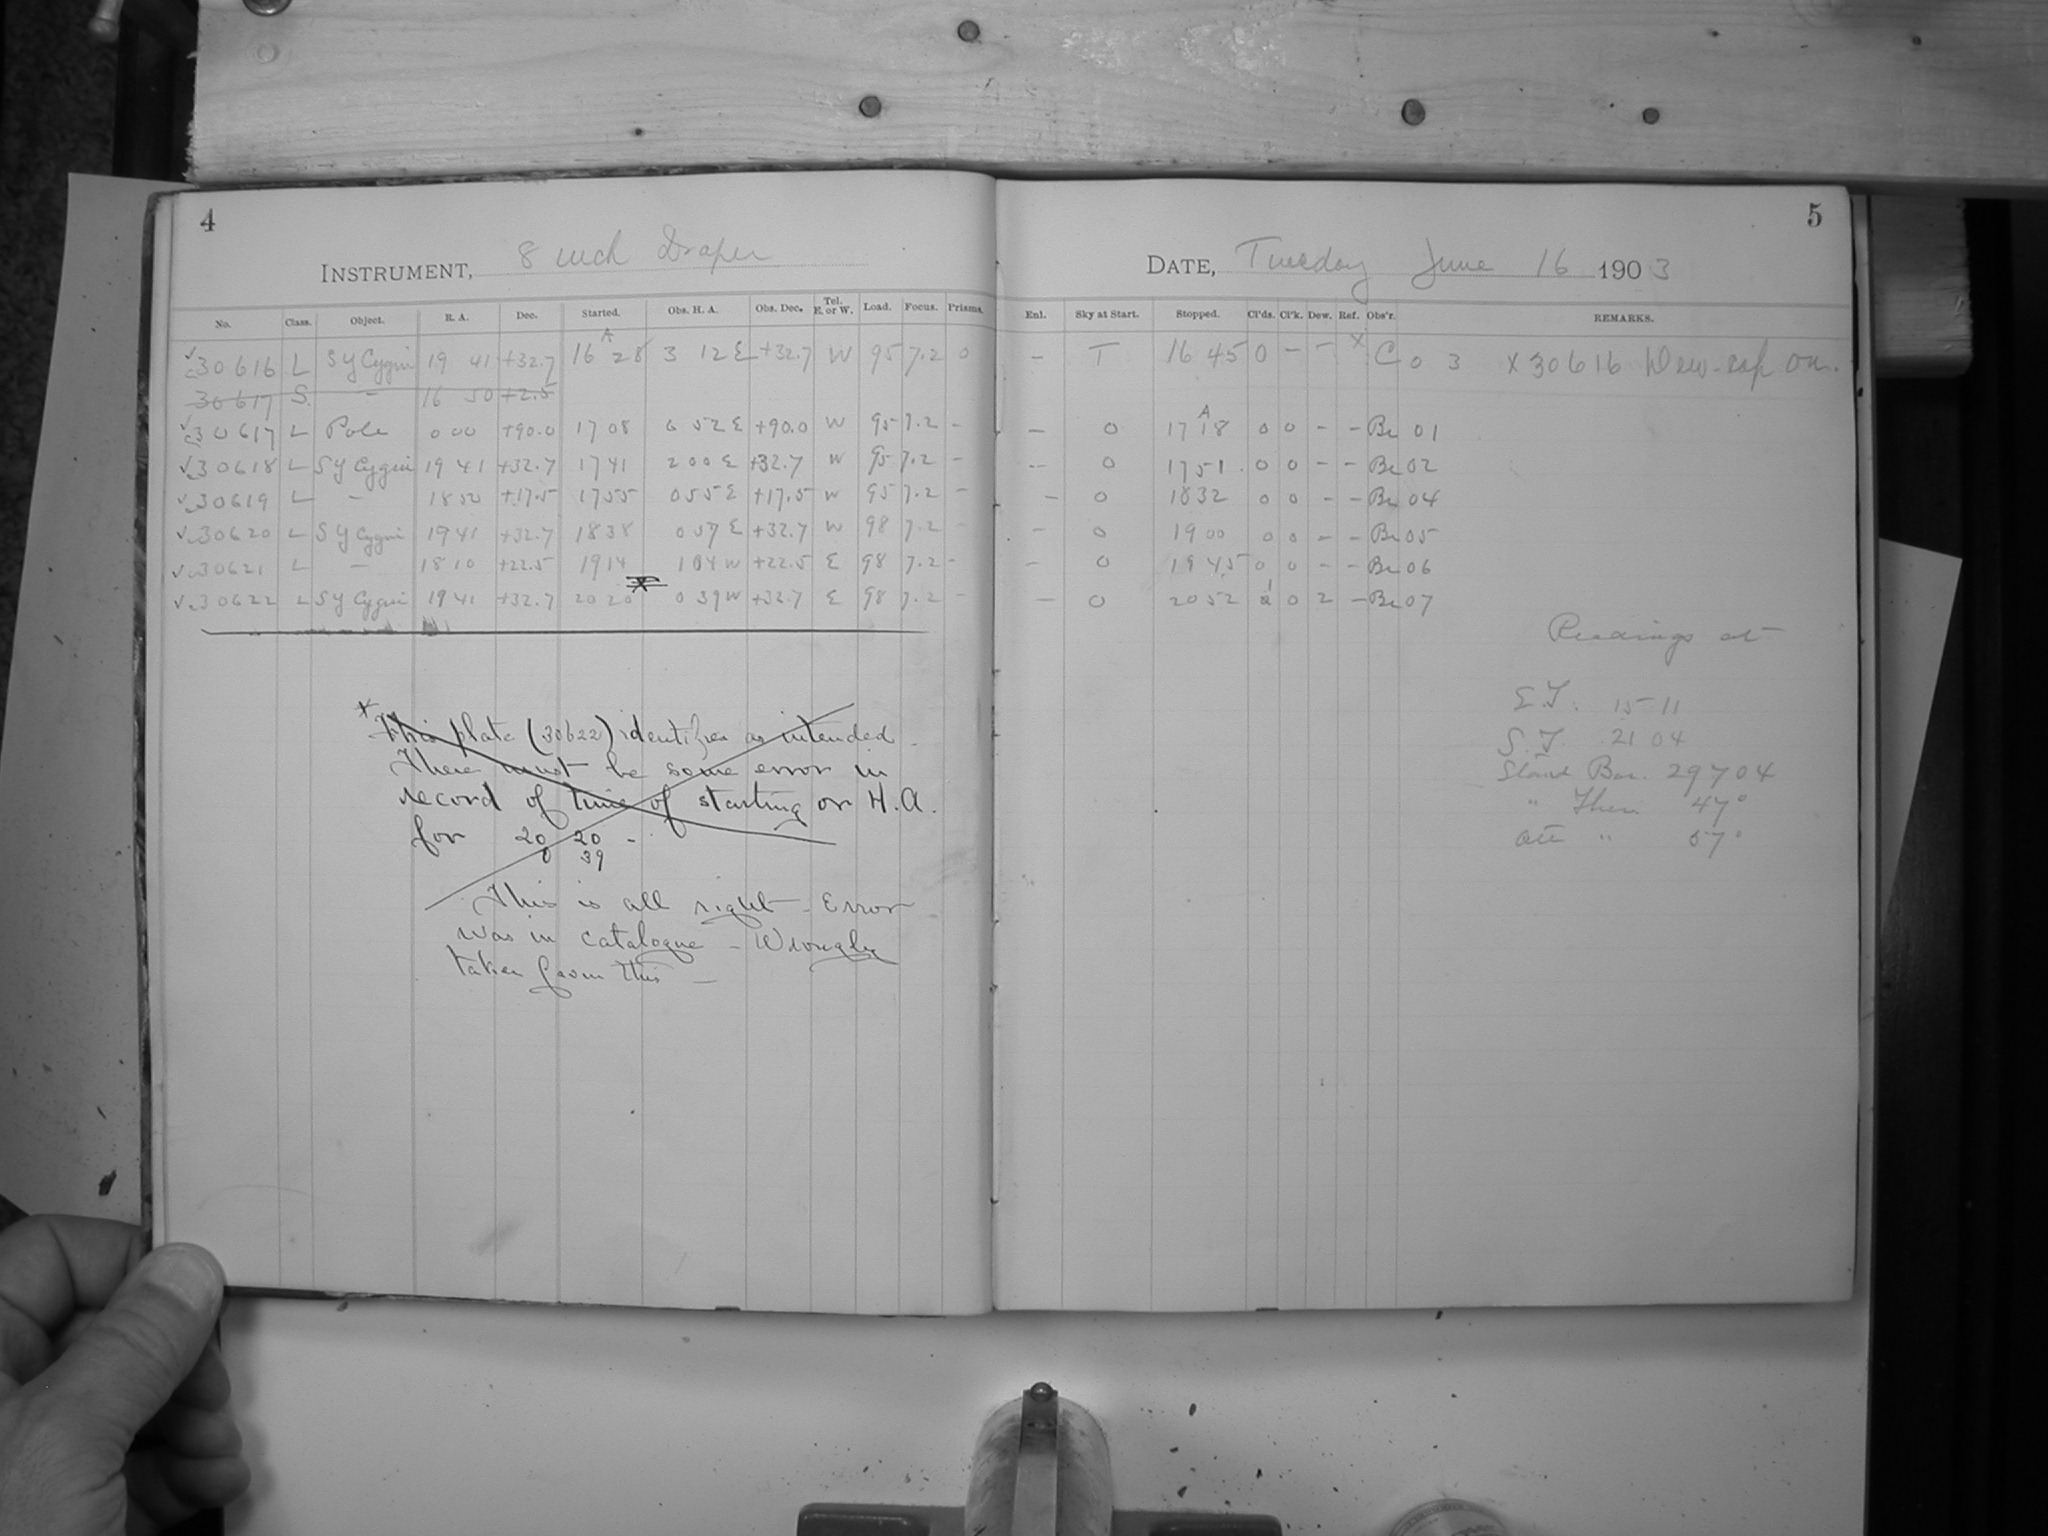 4
INSTRUMENT, 8 inch Draper
No. Class. Object. R. A. Dec. Started. Obs. H. A. Obs. Dec. Tel. E. or W. Load. Focus. Prisms.
30616 L SY Cygni 19 41 +32.7 16 28 3 12 E +32.7 W 95 7.2 0
30617 S. - 16 50 +2.5
30617 L Pole 0 00 +90.0 17 08 0 52 E +90.0 W 95 7.2 -
30618 L SY Cygni 19 41 +32.7 17 41 2 00 E +32.7 W 95 7.2 -
30619 L - 18 50 +17.5 17 55 0 55 E +17.5 W 95 7.2 -
30620 L SY Cygni 19 41 +32.7 18 38 0 57 E +32.7 W 98 7.2 -
30621 L - 18 10 +22.5 19 14 1 04 W +22.5 E 98 7.2 -
30622 L SY Cygni 19 41 +32.7 20 20 * 0 39 W +32.7 E 98 7.2 -
* This plate (30622) identifies as intended.
There must be some error in
record of time of starting or H.A.
for 20 20 -
0 39
This is all right - Error
was in catalogue - Wrongly
taken from this -
5
DATE, Tuesday June 16 1903
Enl. Sky at Start. Stopped. Cl'ds. Cl'k. Dew. Ref. Obs'r. REMARKS.
- T 16 45 0 - - X C 0 3 X 30616 Dew-cap on.
- 0 17 18 0 0 - - Be 01
- 0 17 51 0 0 - - Be 02
- 0 18 32 0 0 - - Be 04
- 0 19 00 0 0 - - Be 05
- 0 19 45 0 0 - - Be 06
- 0 20 52 1 0 2 - Be 07
Readings at
E.T. 15 11
S.T. 21 04
Stand Bar. 29704
" Ther 47°
Att " 57°